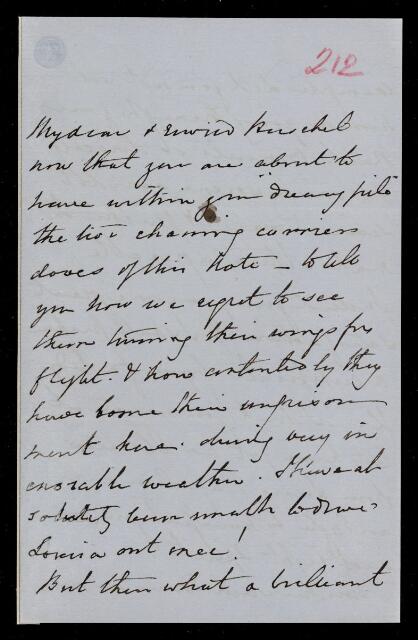 212
My dear & revived Herschel
now that you are about to
have within your "dreary pile"
the two charming carriers
doves of this note – to tell
you how we regret to see
them turning their wings for
flight. & how contentedly they
have borne their imprison
ment here. during very in
exorable weather. I have ab
solutely been unable to drive
Louisa out once!
But then what a brilliant